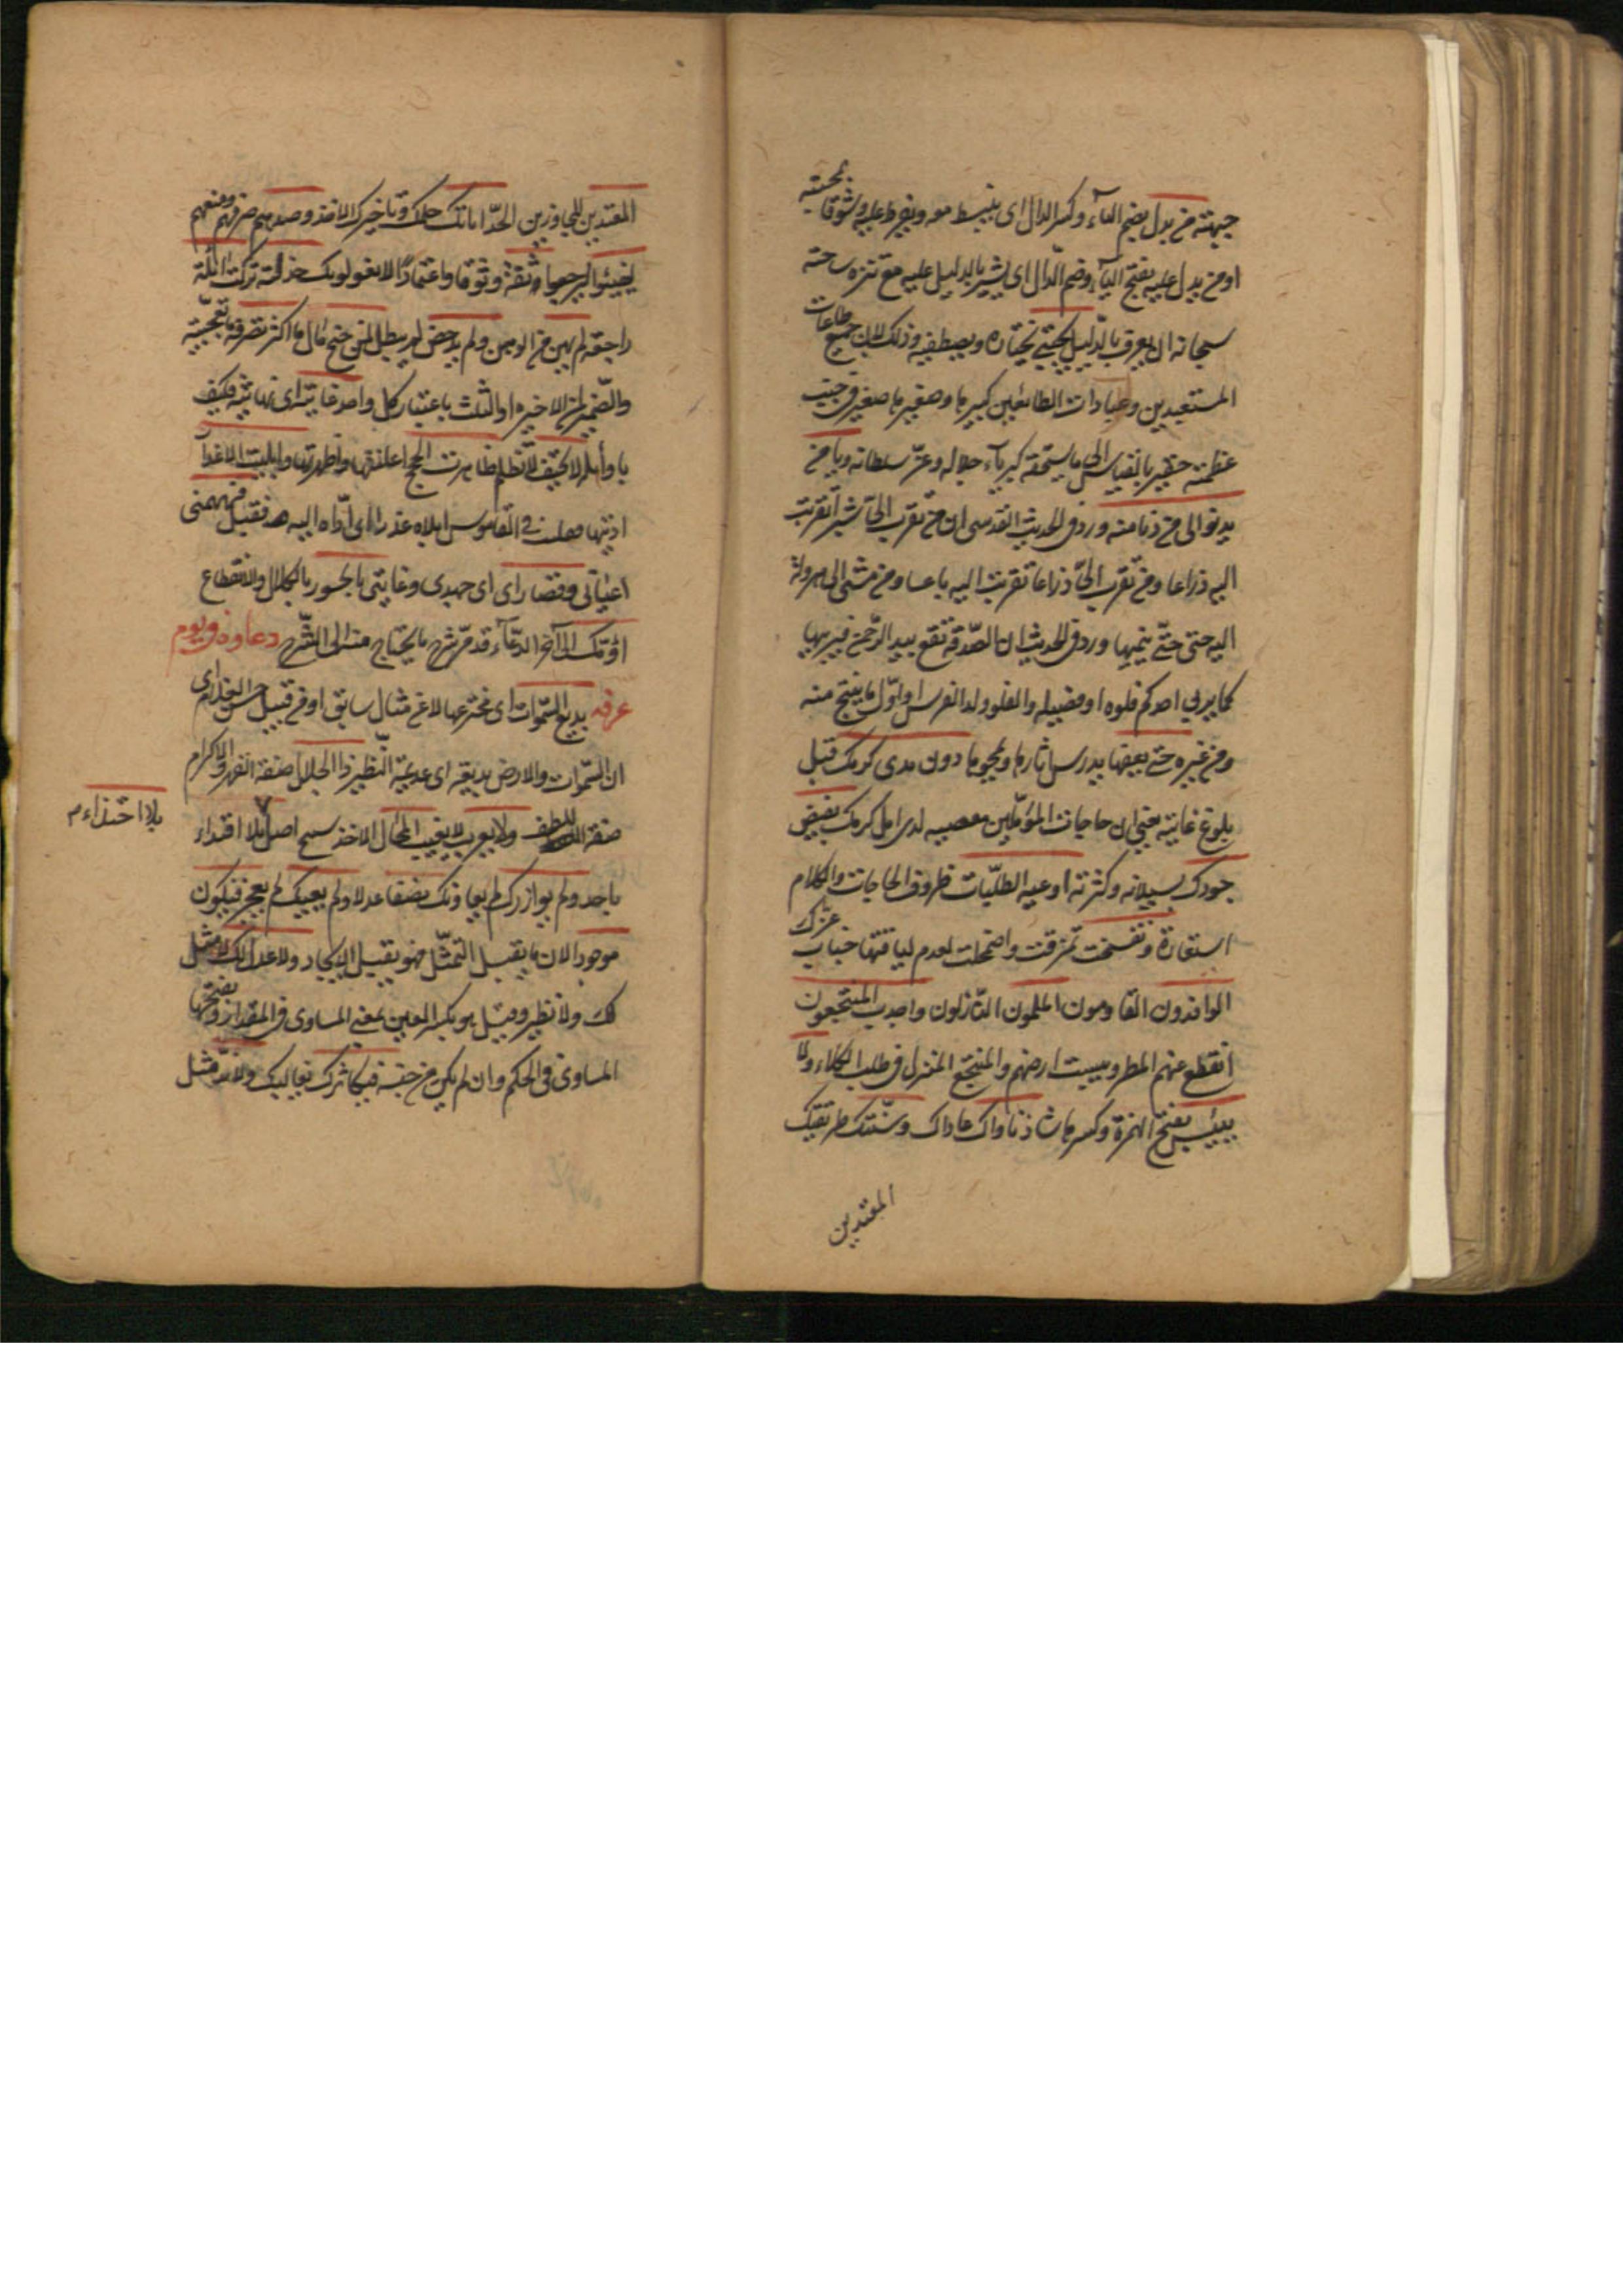 جبهته من يدل بضم الياء وكسر الدال اى ينبسط معه ويفرط عليه وشوقا بمحبته
او من يدل عليه بفتح الياء وضم الدال اى يشير بالدليل عليه مع تنزه ساحته
سبحانه ان يعرف بالدليل يجتبى يختاره ويصطفيه وذلك لان جميع طاعات
المستعبدين وعبادات الطائعين كبيرها وصغيرها صغير فى جنب
عظمته حقير بالقياس الى ما يستحقه كبرياء جلاله وعز سلطانه ويا من
يدنو الى من دنا منه ورد فى الحديث القدسى ان من تقرب الىّ شبرا تقربت
اليه ذراعا ومن تقرب الىّ ذراعا تقربت اليه باعا ومن مشى الى هرولة
اليه حتى حتّى ينميها ورد فى الحديث ان الصدقة تقع بيد الرحمن فيربيها
كما يربى احدكم فلوه او فصيله والفلو ولد الفرس او اول ما ينتج منه
ومن غيره حتى يعفيها يدرس اثارها ويمحوها دون مدى كرمك قبل
بلوغ غايته يعنى ان حاجات المؤملين لدى كرمك بفيض
جودك بسيلانه وكثرته اوعية الطلبات ظروف الحاجات والكلام
استعارة وتفسخت تمزقت واضمحلت لعدم لياقتها جناب عزك
الوافدون القادمون الملمون النازلون واجدب المنتجعون
انقطع عنهم المطر ويبست ارضهم والمنتجع المنزل فى طلب الكلاء ولا
ييئس بفتح الهمزة وكسرها شاذ ناواك عاداك وسنتك طريقتك
المعتدين
المعتدين المجاوزين الحد اناتك حلمك وتاخيرك الاخذ وصدهم صرفهم ومنعهم
ليفيئوا ليرجعوا ثقة وثوقا واعتمادا لا يغولوبك خذلته تركت اثلة
راجعة لم يهن من الوهن ولم يدحض لم يبطل لمن جنح مال ما اكثر تصرفه تعجبية
والضمير لمن الاخيرة او الثلث باعتبار كل واحد غايته اى نهايته فكيف
لا تحيف لا تظلم ظاهرت الحجج اعلنتها واظهرتها وابليت الاعذار
اديتها فى القاموس ابلاه عذرا اى ادّاه اليه فقبله فهمنى
اعيانى وقصاراى اى جهدى وغايتى بالحسور بالكلال والانقطاع
اؤمّك الى آخر الدعاء قد مر شرح ما يحتاج منه الى الشرح دعاوه فى يوم
عرفه بديع السموات اى مخترعها لا عن مثال سابق او من قبيل حسن الغلام اى
ان السموات والارض بديعة اى عديمة النظير ذا الجلال صفة القهر والاكرام
صفة اللطف ولا يعزب لا يغيب المحال الاخذ سنخ اصل بلا اقتداء
بلا احتذاء م
باحد ولم يوازرك لم يعاونك نصفا عدلا ولم يعييك لم يعجز فيكون
موجودا لان ما يقبل التمثل فهو يقبل الايجاد ولا عدل لك لا مثل
لك ولا نظير وقيل هو بكسر العين بمعنى المساوى فى المقدار وبفتحها
المساوى فى الحكم وان لم يكن من جنسه فيكاثرك يغاليك ولا ند مثل